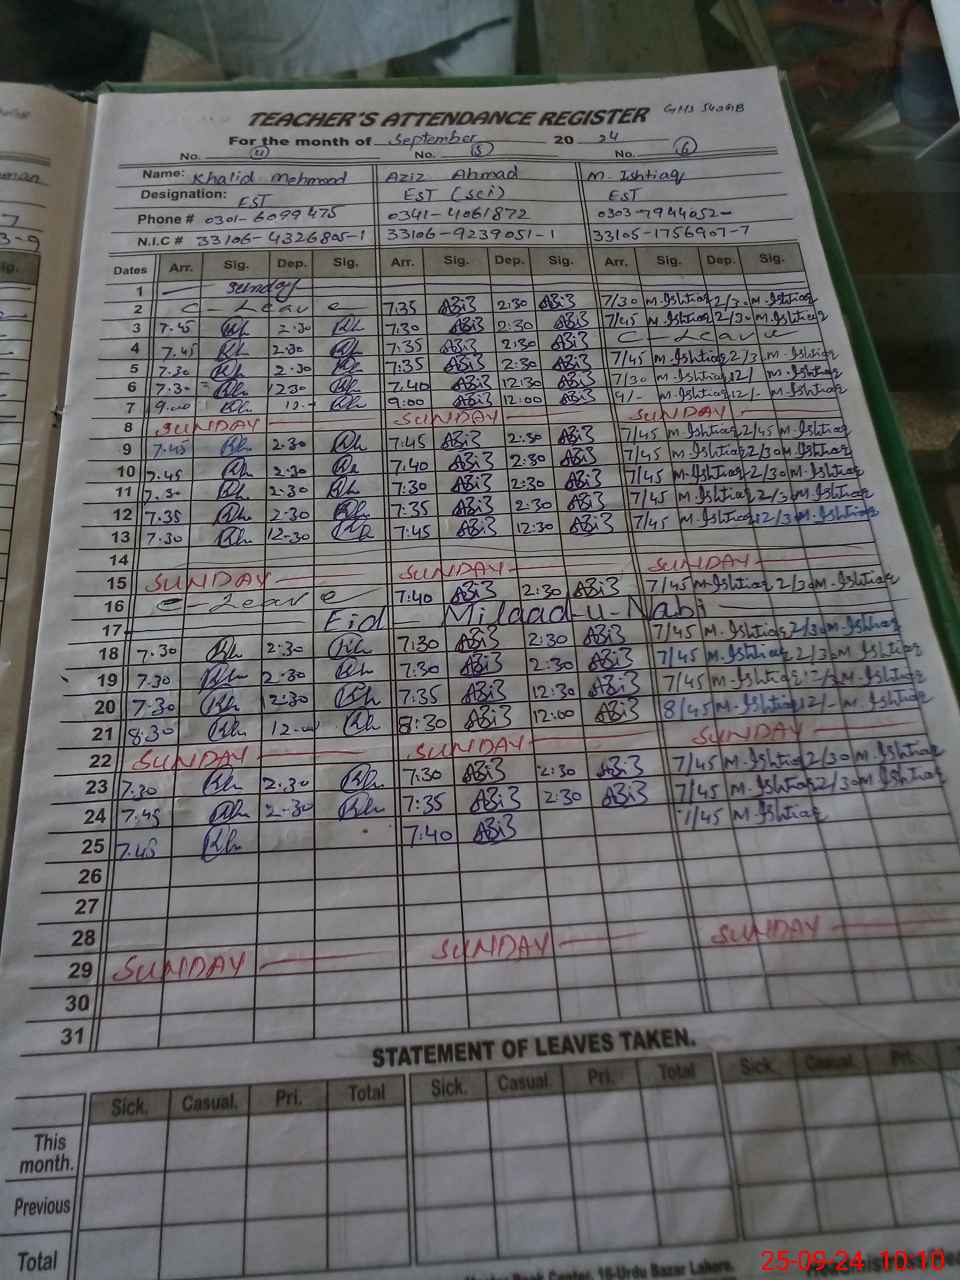 GHS 542GB
TEACHER'S ATTENDANCE REGISTER
For the month of September 20 24
No. (4) No. (5) No. (6)
Name: Khalid Mehmood Aziz Ahmad M. Ishtiaq
Designation: EST EST (sci) EST
Phone # 0301-6099475 0341-4061872 0303-7944052
N.I.C # 33106-4326805-1 33106-9239051-1 33105-1756907-7
Dates Arr. Sig. Dep. Sig. Arr. Sig. Dep. Sig. Arr. Sig. Dep. Sig.
1 Sunday
2 C-Leave 7:35 2:30 7/30 M.Ishtiaq 2/30 M.Ishtiaq
3 7.45 2.30 7:30 2:30 7/45 M.Ishtiaq 2/30 M.Ishtiaq
4 7.45 2.30 7:35 2:30 C-Leave
5 7.30 2.30 7:35 2:30 7/45 M.Ishtiaq 2/3 M.Ishtiaq
6 7.30 12.30 7:40 12:30 7/30 M.Ishtiaq 12/ M.Ishtiaq
7 9.00 12.- 9:00 12:00 9/- M.Ishtiaq 12/- M.Ishtiaq
8 SUNDAY SUNDAY SUNDAY
9 7.45 2.30 7:45 2:30 7/45 M.Ishtiaq 2/45 M.Ishtiaq
10 7.45 2.30 7:40 2:30 7/45 M.Ishtiaq 2/30 M.Ishtiaq
11 7.30 2.30 7:30 2:30 7/45 M.Ishtiaq 2/30 M.Ishtiaq
12 7.35 2.30 7:35 2:30 7/45 M.Ishtiaq 2/30 M.Ishtiaq
13 7.30 12-30 7:45 12:30 7/45 M.Ishtiaq 12/30 M.Ishtiaq
14
15 SUNDAY SUNDAY SUNDAY
16 C-Leave 7:40 2:30 7/45 M.Ishtiaq 2/30 M.Ishtiaq
17 Eid Milaad-u-Nabi
18 7.30 2:30 7:30 2:30 7/45 M.Ishtiaq 2/30 M.Ishtiaq
19 7.30 2.30 7:30 2:30 7/45 M.Ishtiaq 2/30 M.Ishtiaq
20 7.30 12.30 7:35 12:30 7/45 M.Ishtiaq 12/3 M.Ishtiaq
21 8.30 12.00 8:30 12:00 8/45 M.Ishtiaq 12/- M.Ishtiaq
22 SUNDAY SUNDAY SUNDAY
23 7.30 2.30 7:30 2:30 7/45 M.Ishtiaq 2/30 M.Ishtiaq
24 7.45 2.30 7:35 2:30 7/45 M.Ishtiaq 2/30 M.Ishtiaq
25 7.45 7:40 7/45 M.Ishtiaq
26
27
28
29 SUNDAY SUNDAY SUNDAY
30
31
STATEMENT OF LEAVES TAKEN.
Sick. Casual. Pri. Total Sick. Casual Pri. Total Sick. Casual. Pri.
This month.
Previous
Total
Book Center, 16-Urdu Bazar Lahore.
25-09-24 10:10